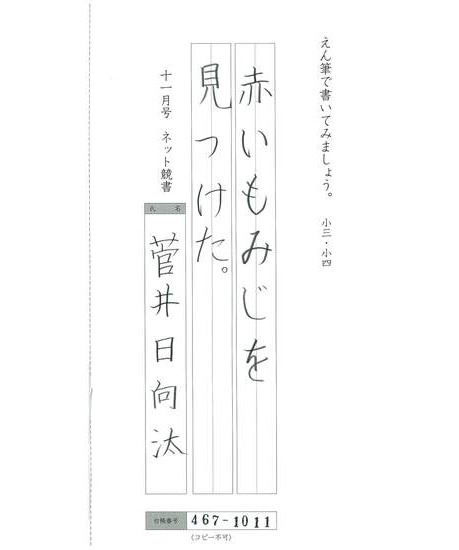 えん筆で書いてみましょう。 小三・小四
赤いもみじを
見つけた。
十一月号 ネット競書
氏 名
菅井日向汰
台帳番号 467-1011
(コピー不可)